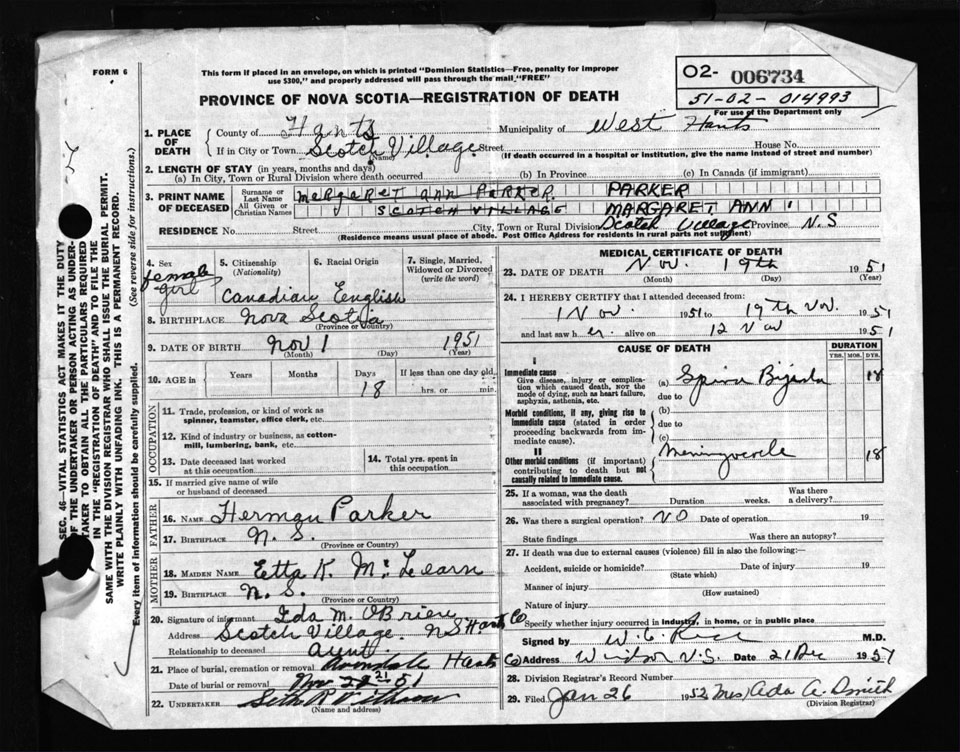 FORM 6
This form if placed in an envelope, on which is printed "Dominion Statistics—Free, penalty for improper
use $300," and properly addressed will pass through the mail "FREE"
O2- 006734
51-02-014993
For use of the Department only
PROVINCE OF NOVA SCOTIA—REGISTRATION OF DEATH
1. PLACE OF DEATH
County of Hants Municipality of West Hants
If in City or Town Scotch Village Street House No.
(Name) (If death occurred in a hospital or institution, give the name instead of street and number)
2. LENGTH OF STAY (in years, months and days)
(a) In City, Town or Rural Division where death occurred (b) In Province (c) In Canada (if immigrant)
3. PRINT NAME OF DECEASED
Surname or Last Name MARGARET ANN PARKER PARKER
All Given or Christian Names SCOTCH VILLAGE MARGARET ANN
RESIDENCE No. Street City, Town or Rural Division Scotch Village Province N.S
(Residence means usual place of abode. Post Office Address for residents in rural parts not sufficient)
4. Sex female girl
5. Citizenship (Nationality) Canadian
6. Racial Origin English
7. Single, Married, Widowed or Divorced (write the word)
8. BIRTHPLACE Nova Scotia
(Province or Country)
9. DATE OF BIRTH Nov 1 1951
(Month) (Day) (Year)
10. AGE in Years Months Days 18 If less than one day old, hrs. or min.
OCCUPATION
11. Trade, profession, or kind of work as spinner, teamster, office clerk, etc.
12. Kind of industry or business, as cotton-mill, lumbering, bank, etc.
13. Date deceased last worked at this occupation
14. Total yrs. spent in this occupation
15. If married give name of wife or husband of deceased
FATHER
16. NAME Herman Parker
17. BIRTHPLACE N. S.
(Province or Country)
MOTHER
18. MAIDEN NAME Etta K. McLearn
19. BIRTHPLACE N. S.
(Province or Country)
20. Signature of informant Ida M. O'Brien
Address Scotch Village. N S Hants Co
Relationship to deceased Aunt.
21. Place of burial, cremation or removal Avondale Hants Co
Date of burial or removal Nov 21 51
22. UNDERTAKER Seth R
(Name and address)
MEDICAL CERTIFICATE OF DEATH
23. DATE OF DEATH Nov. 19th 1951
(Month) (Day) (Year)
24. I HEREBY CERTIFY that I attended deceased from:
1 Nov. 1951 to 19th Nov. 1951
and last saw her alive on 12 Nov 1951
CAUSE OF DEATH
DURATION
YRS. MOS. DYS.
I
Immediate cause
Give disease, injury or complication which caused death, NOT the mode of dying, such as heart failure, asphyxia, asthenia, etc.
(a) Spina Bifida 18
due to
Morbid conditions, if any, giving rise to immediate cause (stated in order proceeding backwards from immediate cause).
(b)
due to
(c)
II
Other morbid conditions (if important) contributing to death but not causally related to immediate cause.
Meningocele 18
25. If a woman, was the death associated with pregnancy? Duration weeks. Was there a delivery?
26. Was there a surgical operation? NO Date of operation 19
State findings Was there an autopsy?
27. If death was due to external causes (violence) fill in also the following:—
Accident, suicide or homicide? Date of injury 19
(State which)
Manner of injury
(How sustained)
Nature of injury
Specify whether injury occurred in industry, in home, or in public place
Signed by W. C. M.D.
Address Windsor N.S. Date 21 Dec 1951
28. Division Registrar's Record Number
29. Filed Jan 26 1952 Mrs Ada A. Smith
(Division Registrar)
SEC. 46—VITAL STATISTICS ACT MAKES IT THE DUTY
OF THE UNDERTAKER OR PERSON ACTING AS UNDER-
TAKER TO OBTAIN ALL THE PARTICULARS REQUIRED
IN THE "REGISTRATION OF DEATH" AND TO FILE THE
SAME WITH THE DIVISION REGISTRAR WHO SHALL ISSUE THE BURIAL PERMIT.
WRITE PLAINLY WITH UNFADING INK. THIS IS A PERMANENT RECORD.
Every item of information should be carefully supplied. (See reverse side for instructions.)